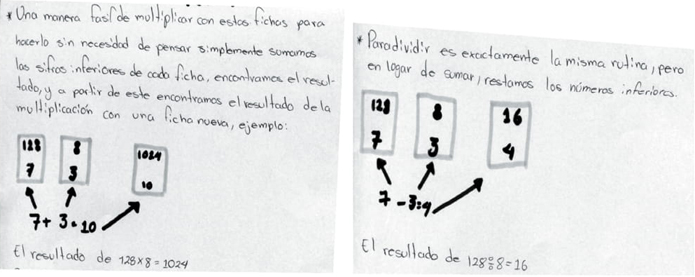 * Una manera fasíl de multiplicar con estas fichas para
hacerlo sin necesidad de pensar simplemente sumamos
las sifras inferiores de cada ficha, encontramos el resul-
tado, y a partir de este encontramos el resultado de la
multiplicación con una ficha nueva, ejemplo:
128 8 1024
7 3 10
7 + 3 = 10
El resultado de 128 x 8 = 1024
* Para dividir es exactamente la misma rutina, pero
en lugar de sumar, restamos los números inferiores.
128 8 16
7 3 4
7 - 3 = 4
El resultado de 128 ÷ 8 = 16